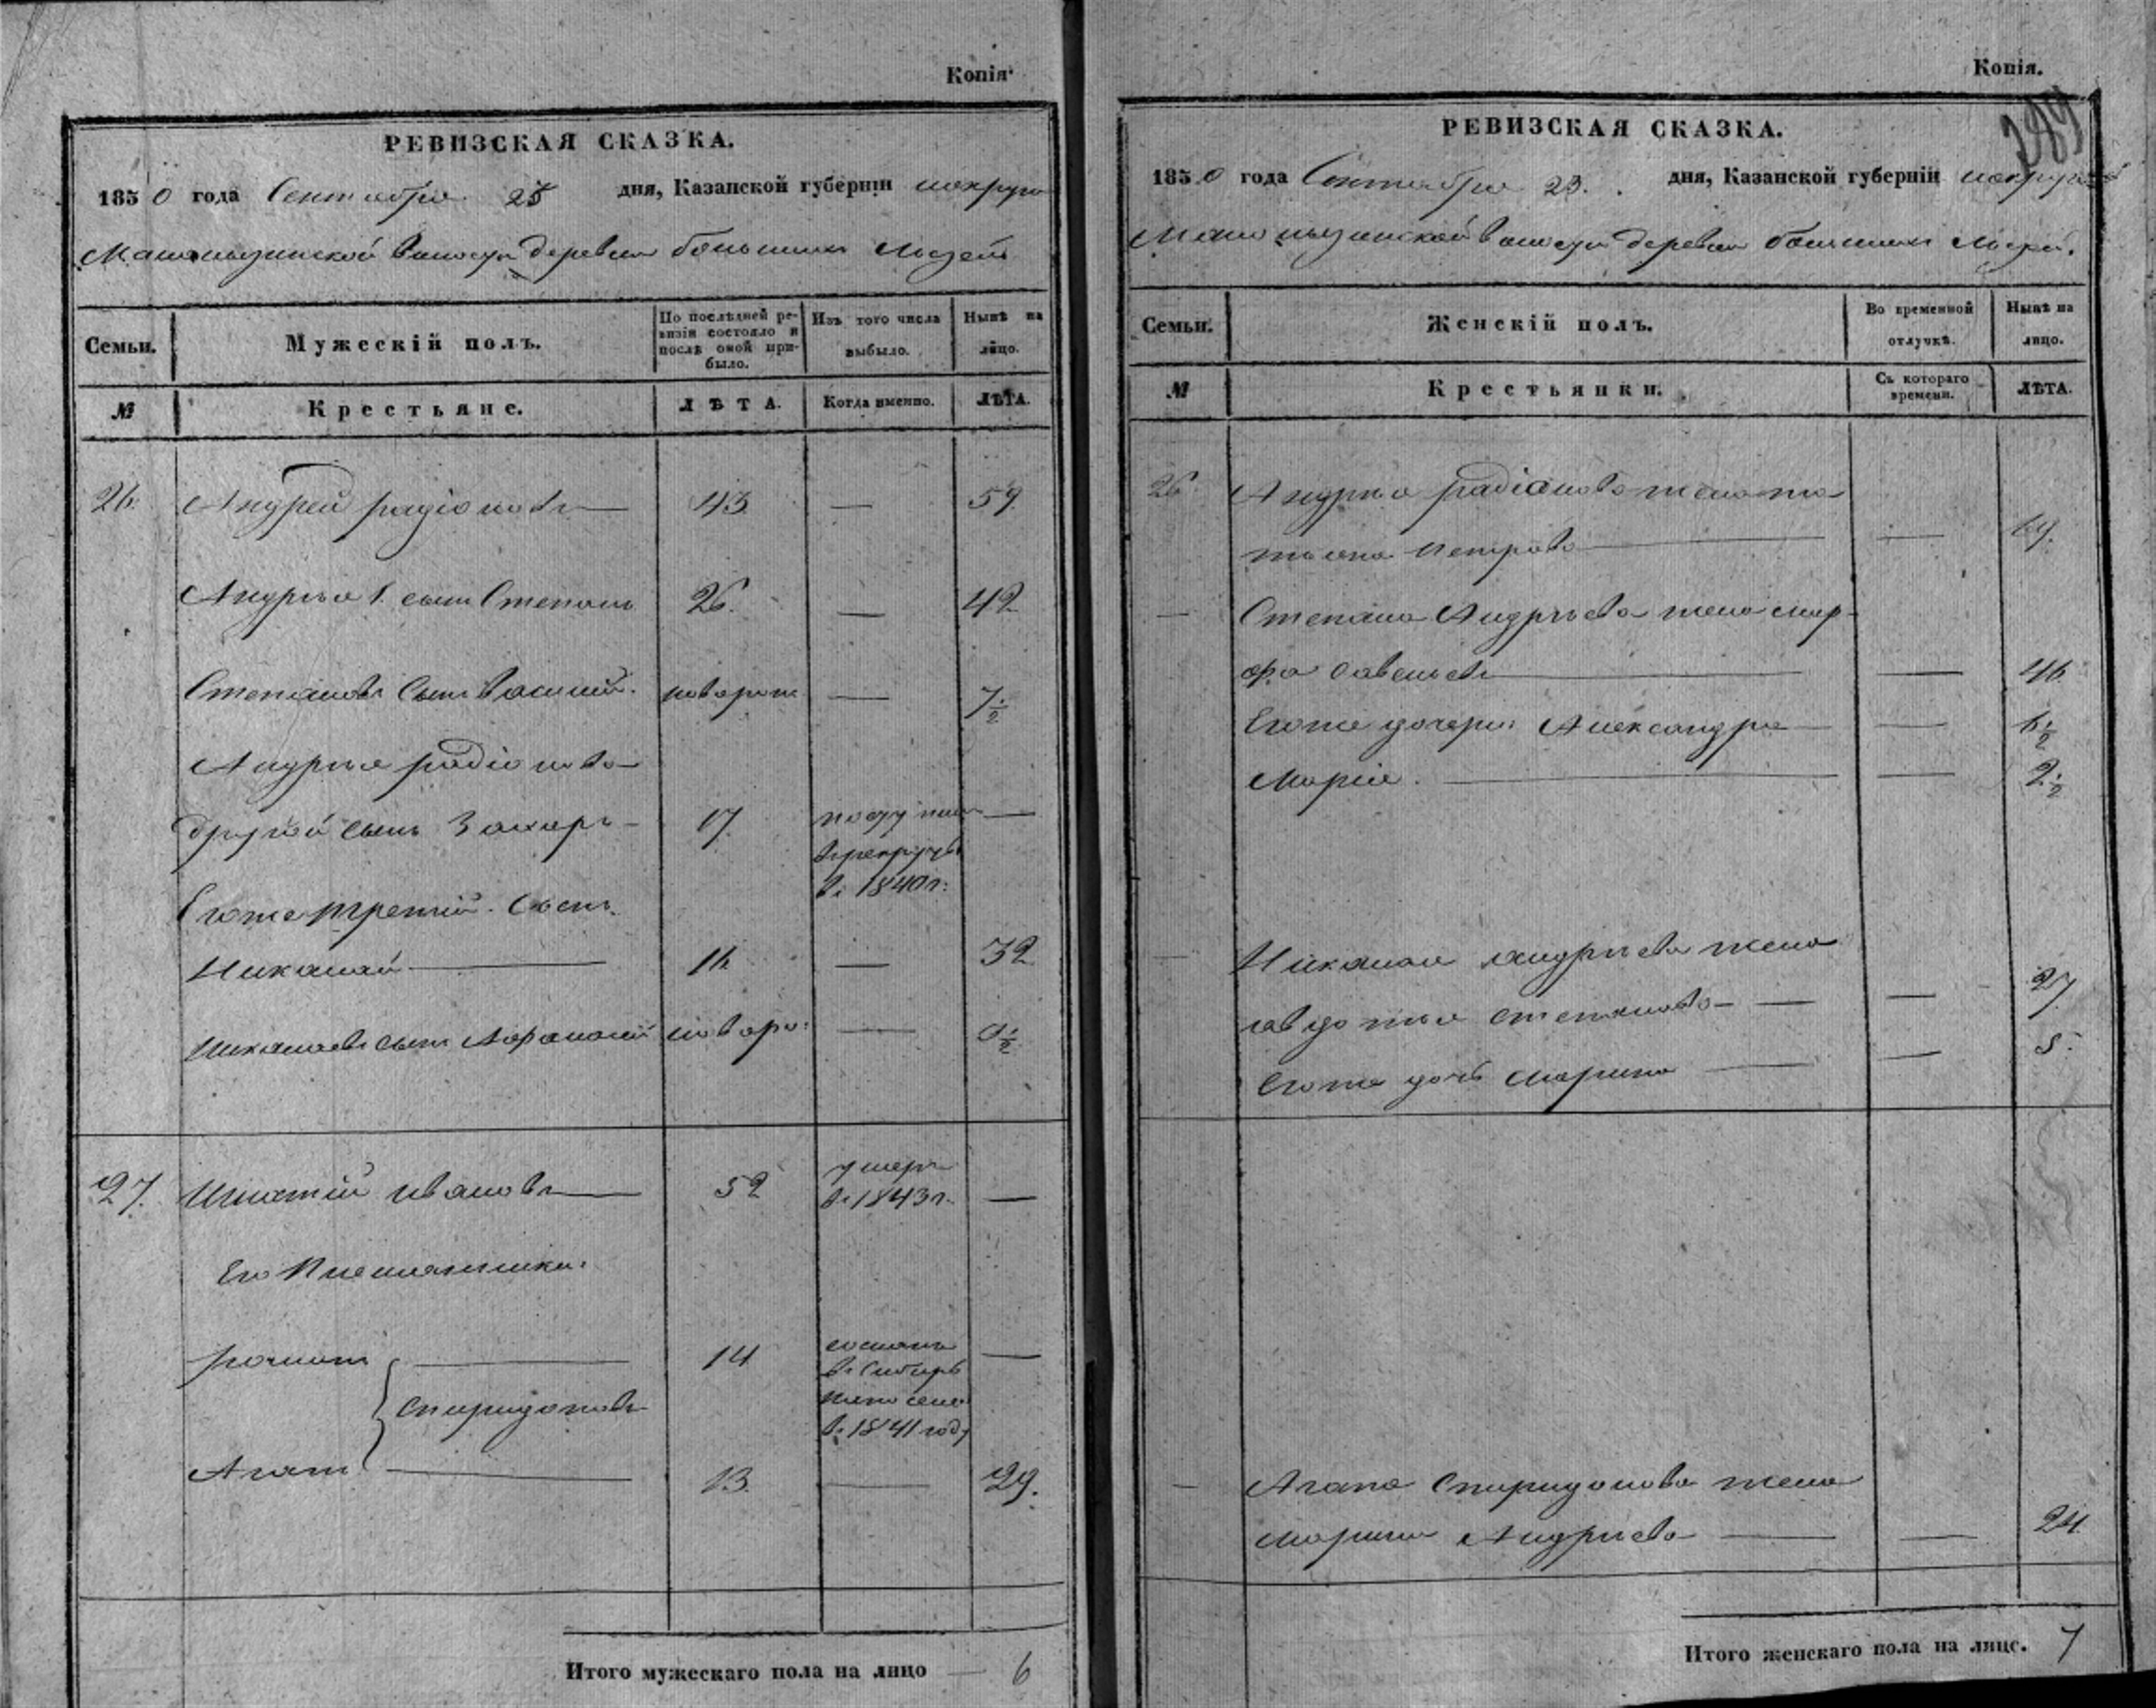 Копія
РЕВИЗСКАЯ СКАЗКА.
1850 года Сентября 25 дня, Казанской губерніи
деревни большихъ
Семьи.
Мужескій полъ.
По послѣдней ре-
визіи состояло и
послѣ оной при-
было.
Изъ того числа
выбыло.
Нынѣ на
лицо.
№
Крестьяне.
ЛѢТА.
Когда именно.
ЛѢТА.
26. Андрей радіоновъ — 43 — 59.
Андрѣя 1. сынъ Степанъ 26. — 42
Степановъ сынъ Василій. новорож — 7 1/2
Андрѣя радіонова
другой сынъ Захаръ 17 поступил —
в рекруты
въ 1840 г:
Егоже третій сынъ
Николай — 16 — 32
Николаевъ сынъ Афонасій новоро: — 0 1/2
27. Игнатій ивановъ — 52 умеръ —
въ 1843 г.
Его Племянники:
14 сосланъ —
въ Сибирь
на посел
въ 1841 году
Спиридоновы
Агапъ — 13. — 29.
Итого мужескаго пола на лицо — 6
Копія.
РЕВИЗСКАЯ СКАЗКА.
1850 года Сентября 23. дня, Казанской губерніи
деревни большихъ
Семьи.
Женскій полъ.
Во временной
отлучкѣ.
Нынѣ на
лицо.
№
Крестьянки.
Съ котораго
времени.
ЛѢТА.
26 Андрѣя радіонова жена та-
тьяна петрова — — 69.
— Степана Андрѣева жена мар-
фа савельева — — 46
Егоже дочери: Александра — — 6 1/2
Марія. — — 2 1/2
— Николая андрѣева жена
авдотья степанова — — 27.
Егоже дочь марина — — 5.
— Агапа Спиридонова жена
марина Андрѣева — — 24
Итого женскаго пола на лице. 7